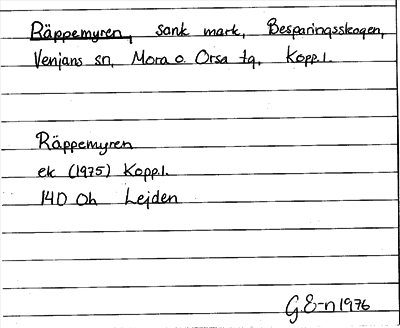 Räppemyren, sank mark, Besparingsskogen,
Venjans sn, Mora o. Orsa tg, Kopp.l.
Räppemyren
ek (1975) Kopp.l.
14D Oh Lejden
G.E-n 1976